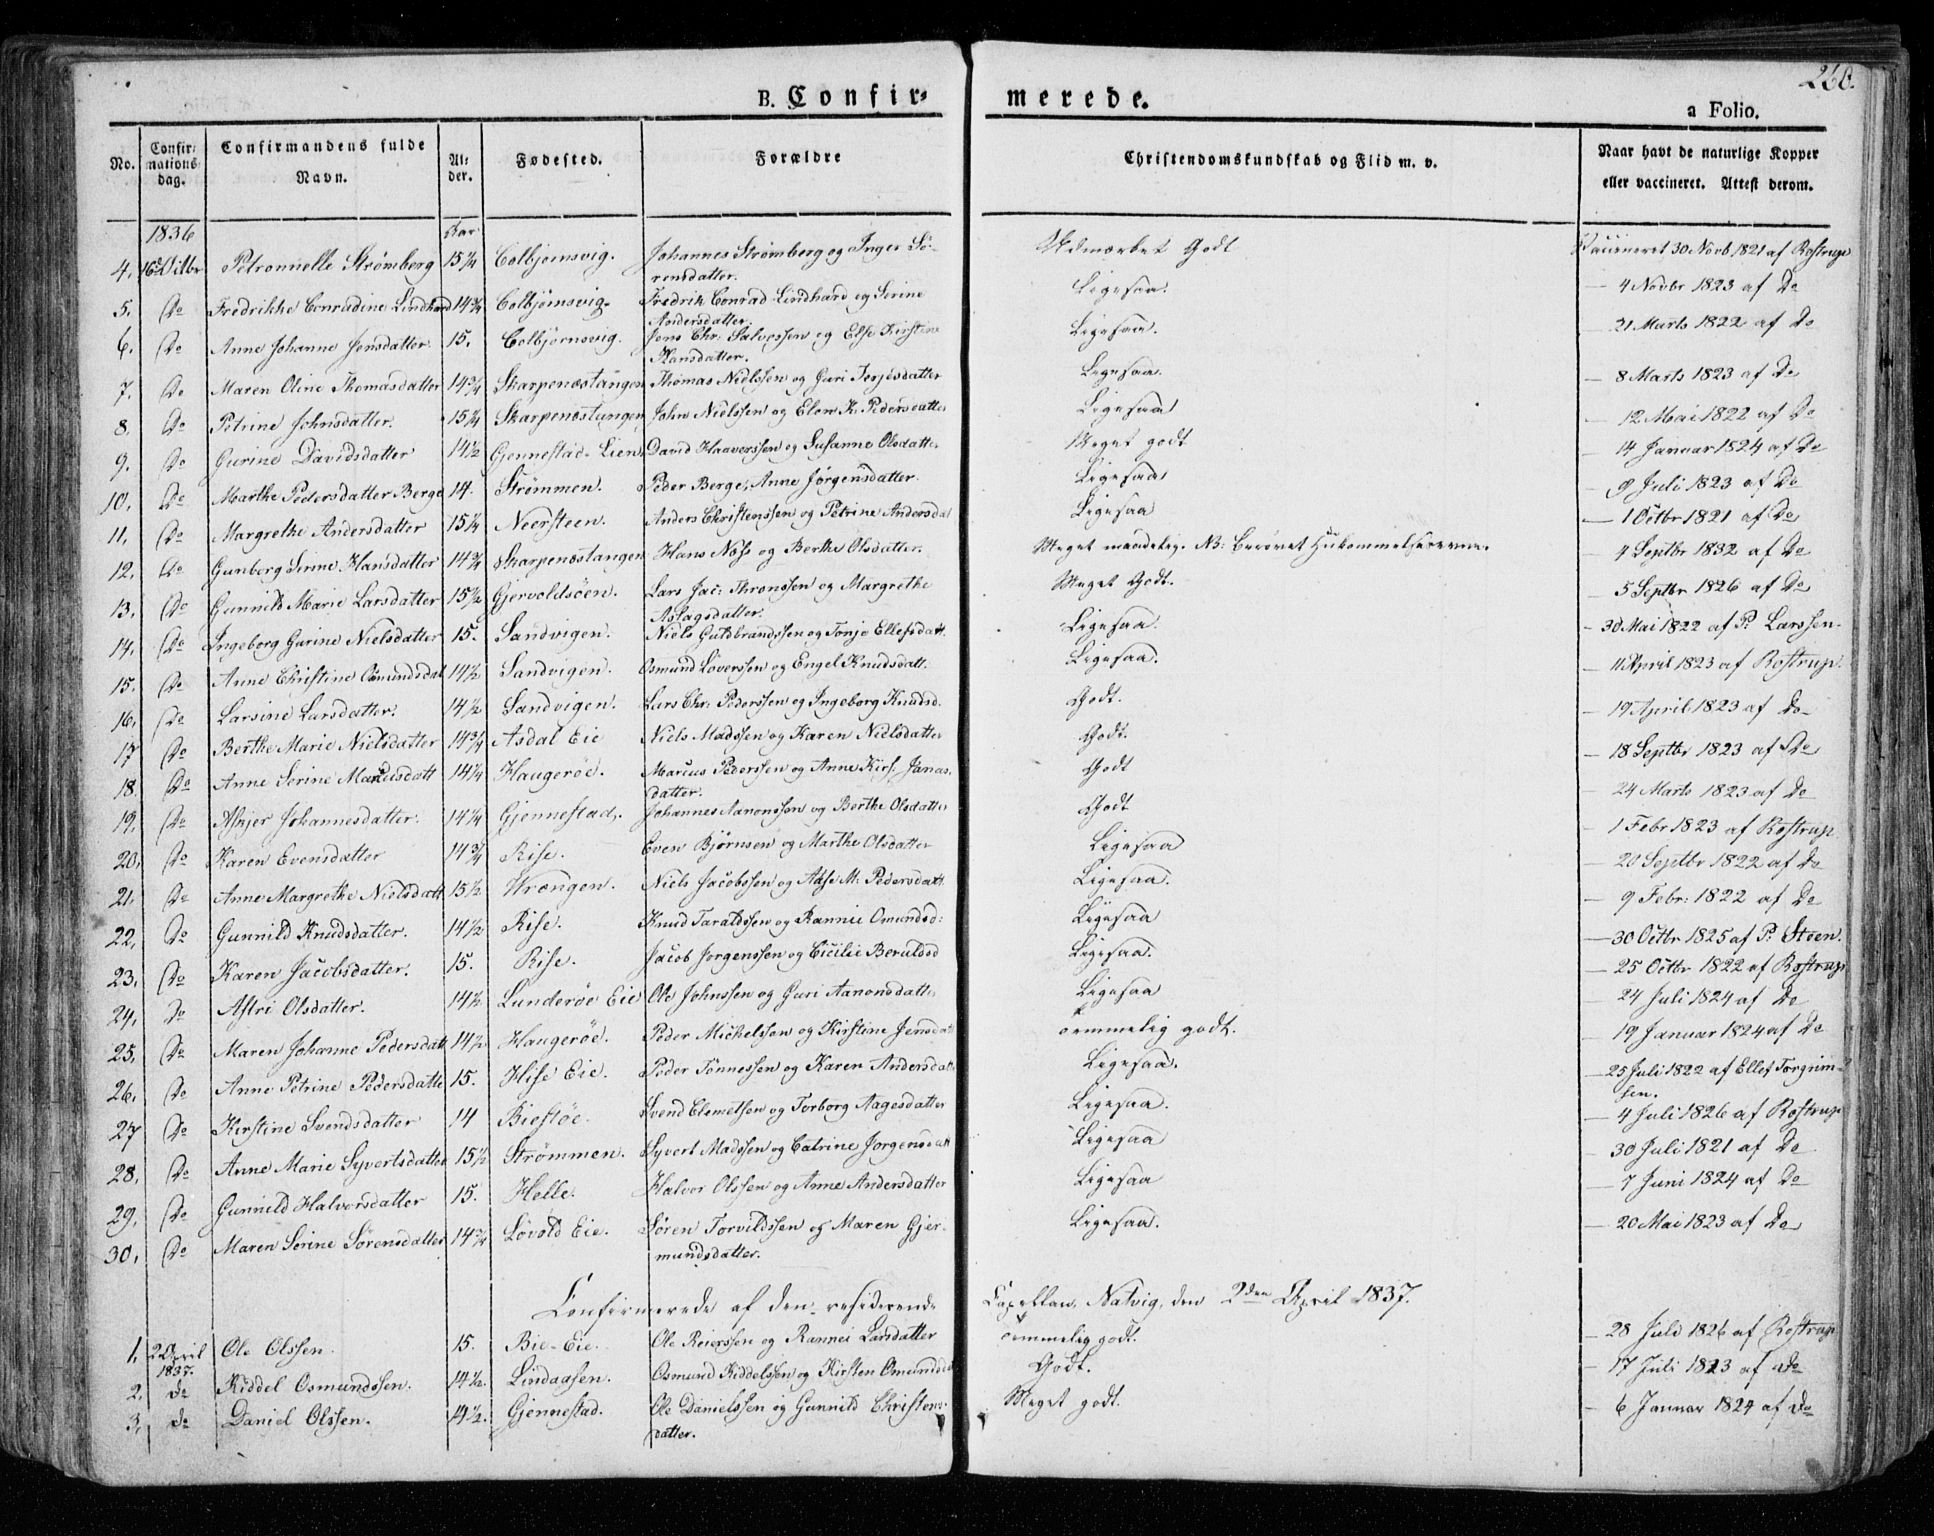 260.
B. Confirmerede.
a Folio.
No. Confirmationsdag. Confirmandens fulde Navn. Alder. Fødested. Forældre Christendomskundskab og Flid m. v. Naar havt de naturlige Kopper eller vaccineret. Attest derom.
1836 Aar
4. 16de Octbr Petronnelle Strømberg 15¼ Colbjørnsvig. Johannes Strømberg og Inger Sørensdatter. Udmærket Godt Vaccineret 30 Novb 1821 af Rostrup
5. Do Fredrikke Conradine Lindhard 14¾ Colbjørnsvig. Fredrik Conrad Lindhard og Serine Andersdatter. Ligesaa. — 4 Novbr 1823 af Do
6. Do Anne Johanne Jensdatter 15. Colbjørnsvig. Jens Chr: Salvessen og Else Kirstine Hansdatter. Ligesaa. — 21 Marts 1822 af Do
7. Do Maren Oline Thomasdatter 14¾ Skarpenæstangen Thomas Nielssen og Guri Terjesdatter Ligesaa. — 8 Marts 1823 af Do
8. Do Petrine Johnsdatter. 15¼ Skarpenæstangen John Nielssen og Elen K. Pedersdatter Ligesaa — 12 Mai 1822 af Do
9. Do Gurine Davidsdatter 14½ Gjennestad-Lien David Haaverssen og Susanne Olsdatt: Meget godt — 14 Januar 1824 af Do
10. Do Marthe Pedersdatter Berge 14. Strømmen. Peder Berge, Anne Jørgensdatter. Ligesaa — 9 Juli 1823 af Do
11. Do Margrethe Andersdatter 15¼ Neersteen. Anders Christenssen og Petrine Andersdat Ligesaa — 1 Octbr 1821 af Do
12. Do Gunberg Serine Hansdatter 14¾ Skarpenæstangen Hans Næss og Berthe Olsdatter. Meget maadelig. NB: berøvet Hukommelsesevne. — 4 Septbr 1832 af Do
13. Do Gunnild Marie Larsdatter 15½ Gjervoldsøen. Lars Jac: Thronssen og Margrethe Aslagsdatter. Meget Godt. — 5 Septbr 1826 af Do
14. Do Ingeborg Gurine Nielsdatter 15. Sandvigen. Niels Guldbrandssen og Tonje Ellefsdatt. Ligesaa. — 30 Mai 1822 af P. Larssen.
15. Do Anne Christine Osmundsdat 14½ Sandvigen. Osmund Løverssen og Engel Knudsdatt. Ligesaa. — 11 April 1823 af Rostrup.
16. Do Larsine Larsdatter. 14½ Sandvigen. Lars Chr: Pederssen og Ingeborg Knudsd. Godt. — 19 April 1823 af Do
17 Do Berthe Marie Nielsdatter 14¾ Asdal Eie Niels Madssen og Karen Nielsdatter Godt. — 18 Septbr 1823 af Do
18. Do Anne Serine Marcusdatt 14¼ Haugerøe. Marcus Pederssen og Anne Kirs. Janasdatter. Godt — 24 Marts 1823 af Do
19. Do Ashjer Johannesdatter. 14¼ Gjennestad. Johannes Aanonssen og Berthe Olsdatter Godt — 1 Febr 1823 af Rostrup
20. Do Karen Evensdatter 14¾ Rise. Even Bjørnsen og Marthe Olsdatter Ligesaa — 20 Septbr 1822 af Do
21. Do Anne Margrethe Nielsdatt 15½ Wrængen. Niels Jacobssen og Adse M: Pedersdatt. Ligesaa. — 9 Febr: 1822 af Do
22. Do Gunnild Knudsdatter. 14½ Rise. Knud Taraldssen og Rannie Omundsd: Ligesaa — 30 Octbr 1825 af P. Steen.
23. Do Karen Jacobsdatter. 15. Rise. Jacob Jørgenssen og Cicilie Beruldsd Ligesaa. — 25 Octbr 1822 af Rostrup
24. Do Astri Olsdatter. 14½ Lunderøe Eie Ole Johnssen og Guri Aanonsdatter Ligesaa — 24 Juli 1824 af Do
25. Do Maren Johanne Pedersdatt 14½ Haugerøe. Peder Michelssen og Kirstine Jensdatt Temmelig godt. — 19 Januar 1824 af Do
26. Do Anne Petrine Pedersdatter 15. Hise Eie. Peder Tønnessen og Karen Andersdatt Ligesaa. — 25 Juli 1822 af Ellef Torgrimsen.
27 Do Kirstine Svendsdatter 14 Biestøe. Svend Clemetsen og Torborg Aagesdatter Ligesaa. — 4 Juli 1826 af Rostrup
28. Do Anne Marie Syvertsdatter 15½ Strømmen. Syvert Madssen og Catrine Jørgensdatt Ligesaa — 30 Juli 1821 af Do
29. Do Gunnild Halvorsdatter 15. Helle. Halvor Olssen og Anne Andersdatter Ligesaa — 7 Juni 1824 af Do
30. Do Maren Serine Sørensdatter 14¾ Løvold Eie. Søren Torvildssen og Maren Gjermundsdatter. Ligesaa. — 20 Mai 1823 af Do
Confirmerede af den residerende Capellan, Natvig, den 2den April 1837.
1. 2 April 1837. Ole Olssen. 15. Bie-Eie. Ole Reierssen og Rannei Larsdatter Temmelig godt. — 28 Juli 1826 af Rostrup
2. do Riddel Osmundssen. 14½. Lindaasen. Osmund Riddelssen og Kirsten Omundsdat Godt. — 17 Juli 1823 af do
3. do Daniel Olssen. 14½. Gjennestad. Ole Danielssen og Gunnild Christensdatter. Meget godt. — 6 Januar 1824 af do